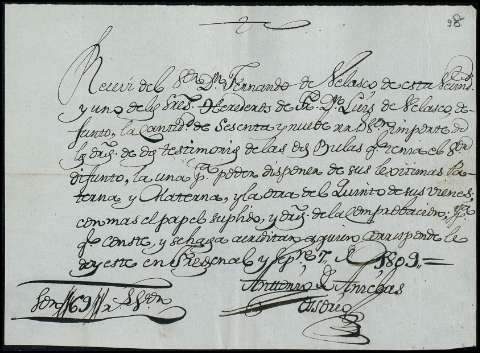 98
Recivi del Sr. Dn. Fernando de Velasco de esta Vecind.
y uno de los Sres. Herederos de Fr. Dn. Luis de Velasco de-
funto, la cantd. de Sesenta y nueve rrs. Von. importe de
los dros. de dos testimonios de las dos Bulas q. tenia el Sor.
difunto, la una pa. poder disponer de sus lexitimas Pa-
terna y Materna, y la otra del Quinto de sus vienes,
con mas el papel suplido, y dros. de la comprobacion; pa.
q. conste, y se haga acreditar a quien corresponde le
doy este en Fregenal y Sepre. 7 de 1809.=
Antonio de Arichas
Osorio
Son 69 rs. Von.